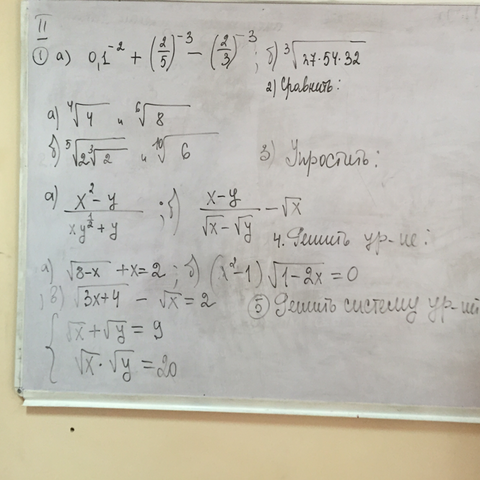 II
① а) 0,1⁻² + (2/5)⁻³ − (2/3)⁻³; б) ³√(27·54·32)
2) Сравнить:
а) ⁴√4 и ⁶√8
б) ⁵√(2³√2) и ¹⁰√6 3) Упростить:
а) (x² − y)/(xy^(1/2) + y); б) (x − y)/(√x − √y) − √x
4. Решить ур-ие:
а) √(8−x) + x = 2; б) (x² − 1)√(1−2x) = 0
; в) √(3x+4) − √x = 2 ⑤ Решить систему ур-ий
{ √x + √y = 9
√x · √y = 20